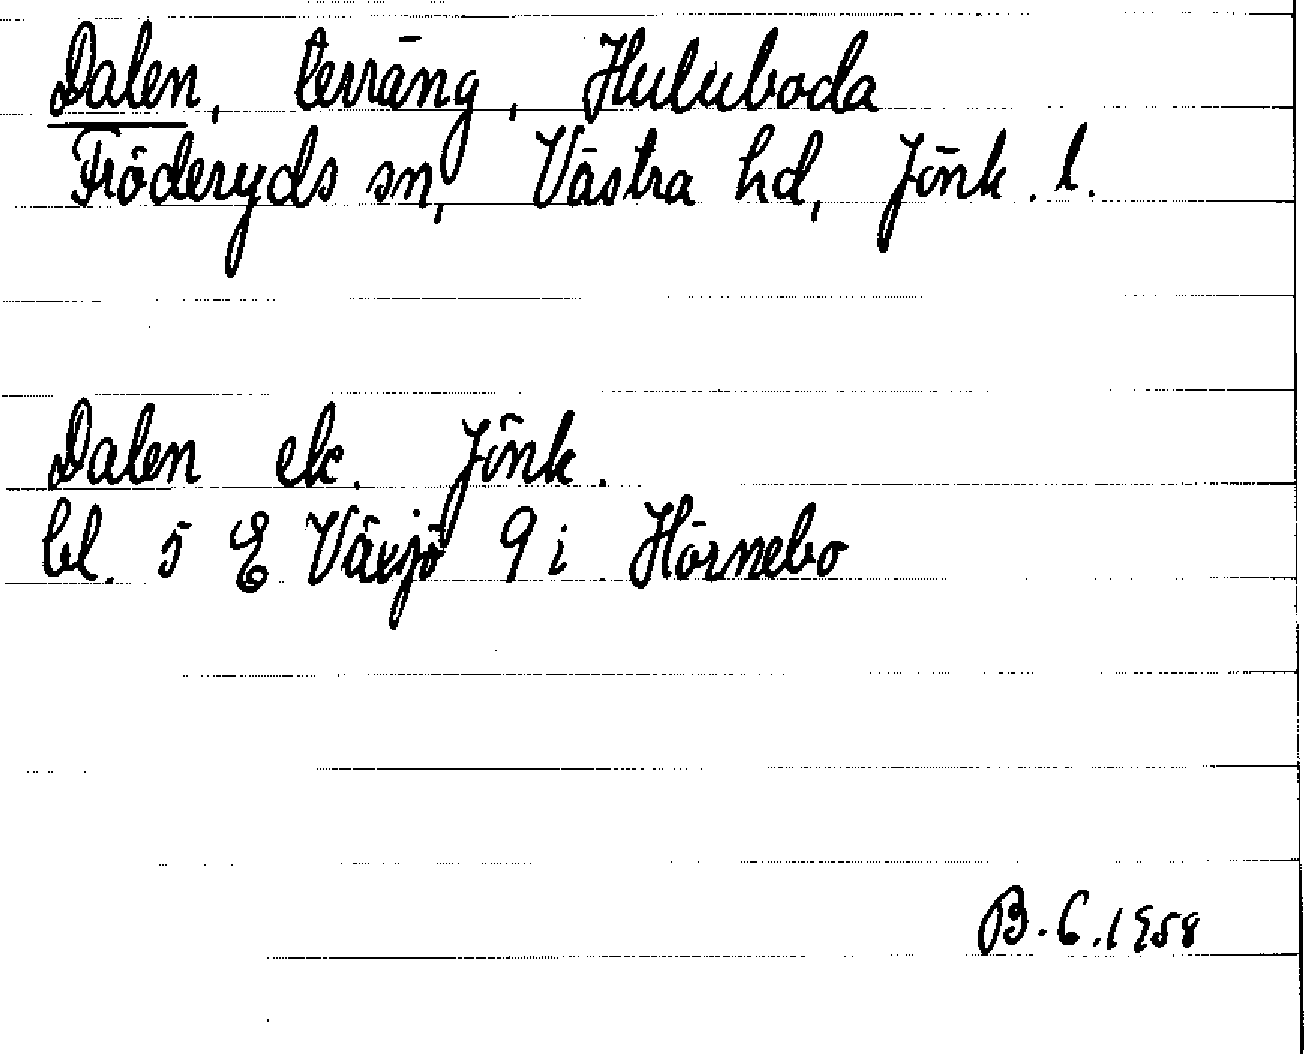 Dalen, terräng, Huluboda
Fröderyds sn, Västra hd, Jönk. l.
Dalen ek. Jönk.
bl. 5 E Växjö 9 i Hörnebo
B.C.1958